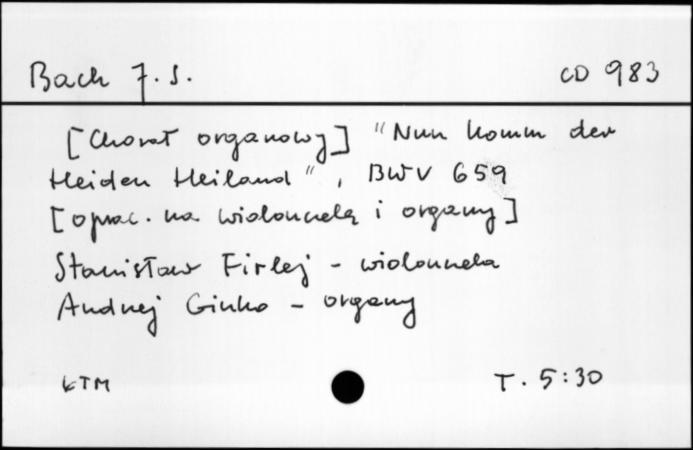 Bach J. S. CD 983
[Chorał organowy] "Nun komm der
Heiden Heiland", BWV 659
[oprac. na wiolonczelę i organy]
Stanisław Firlej - wiolonczela
Andrzej Ginko - organy
KTM T. 5:30